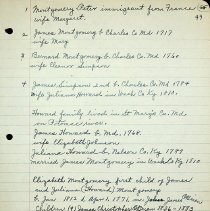 1 Montgomery Peter immigrant from France
wife Margaret.
2 James Montgomery b Charles Co Md 1717
wife Mary
3 Bernard Montgomery b Charles Co Md 1760
wife Eleanor Simpson
4 James Simpson and b. Charles Co Md 1784
wife Juliana Howard in Wash Co Ky 1810.
Howard family lived in St Mary's Co Md
on Potomac river.
James Howard b. Md. 1760.
wife Elizabeth Johnson
Juliana Howard b. Nelson Co Ky 1792
married James Montgomery in Wash Co Ky 1810
Elizabeth Montgomery first child of James
and Juliana (Howard) Montgomery
b Jan 1812 d Apr 1 1871 in
Children (1) James Christopher